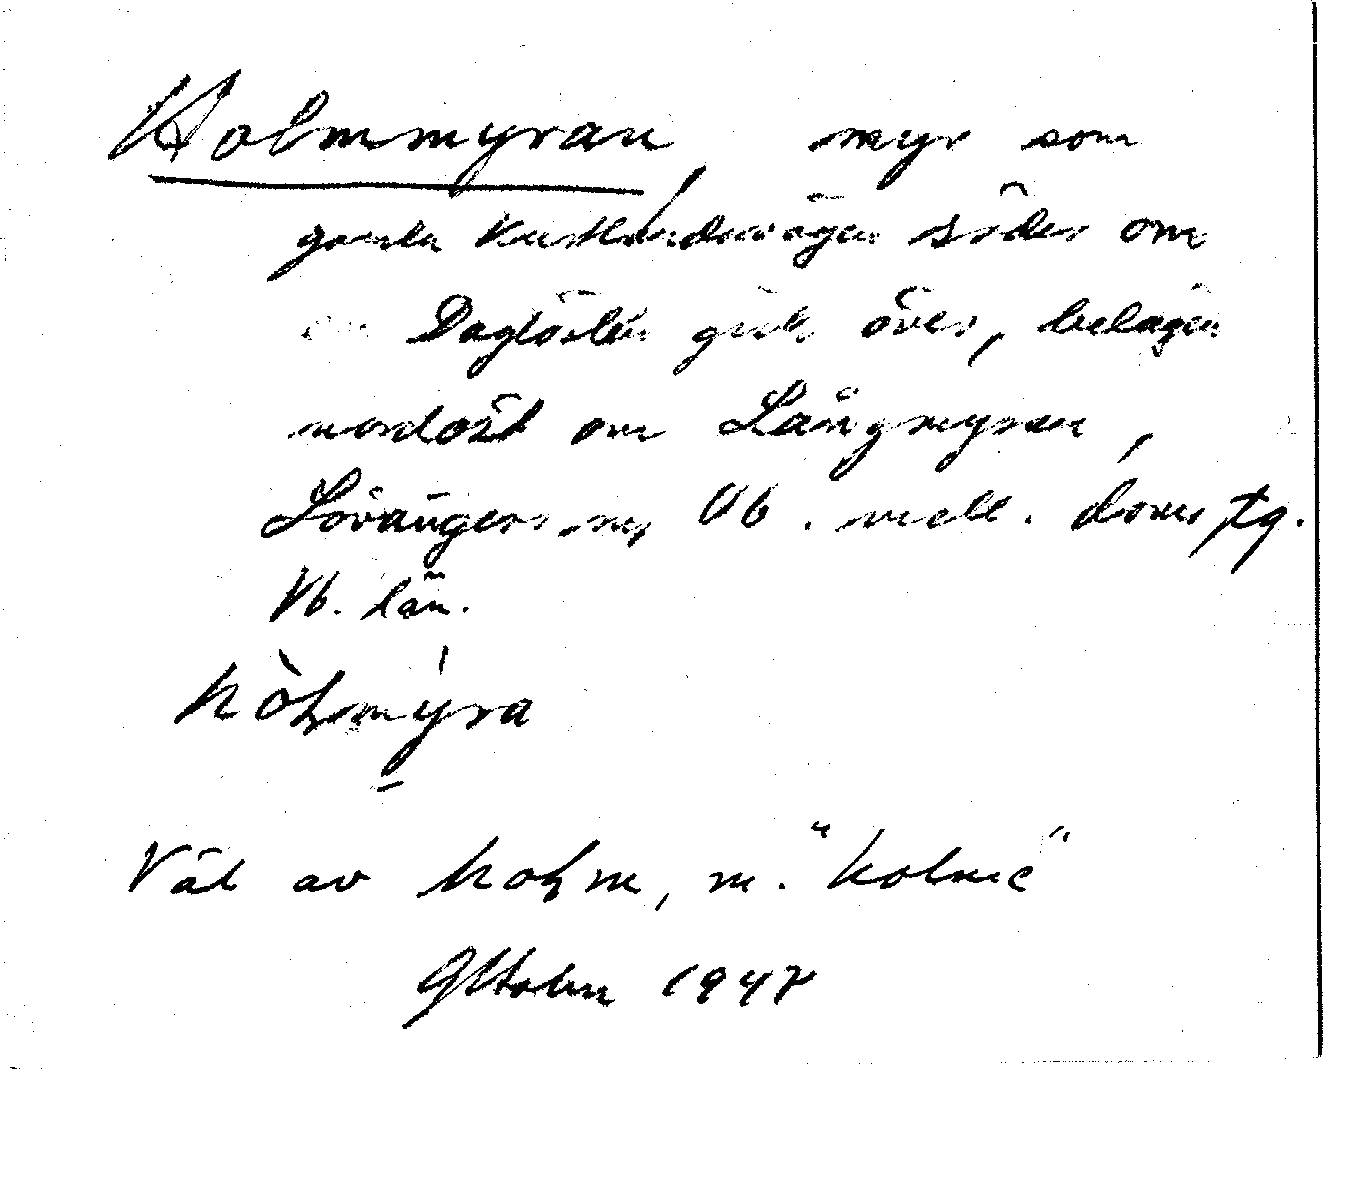 Holmmyran, myr som
gamla kustlandsvägen söder om
Daglösten gick över, belägen
nordost om Långmyran,
Lövångers sn, Vb. mell. doms tg.
Vb. län.
hòlmýra
Väl av holm, m. "holme"
GHolm 1947